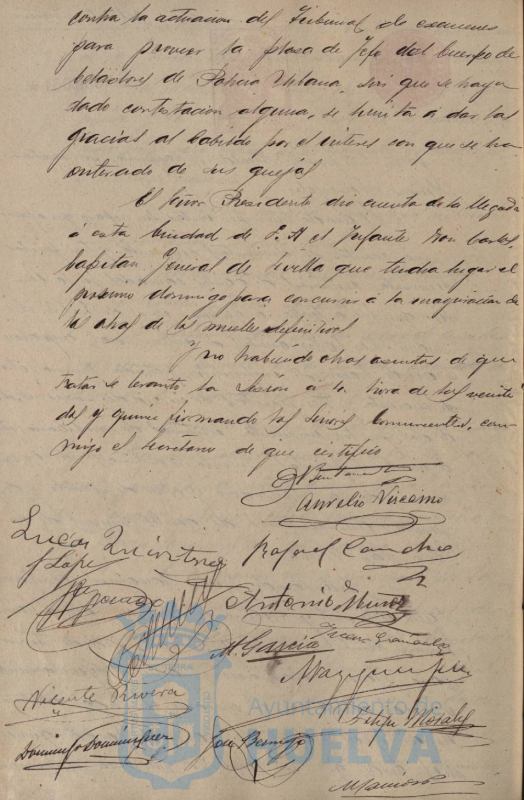 contra la actuacion del Tribunal de examenes
para proveer la plaza de Jefe del Cuerpo de
Celadores de Policia Urbana, sin que se haya
dado contestacion alguna, se limita á dar las
gracias al Cabildo por el interes con que se ha
enterado de sus quejas
El Señor Presidente dió cuenta de la llegada
á esta Ciudad de S. A el Infante Don Carlos
Capitan General de Sevilla que tendra lugar el
proximo domingo para concurrir á la inauguracion de
las obras de los muelles definitivos
Y no habiendo otros asuntos de que
tratar se levanto la sesión á la hora de las veinte
dos y quince firmando los Señores Concurrentes, con-
migo el Secretario de que certifico
Aurelio Vizcaino
Lucas
J Lopez
Rafael
Antonio Muñoz
M. Garcia
Vicente Rivera
Felipe Morales
Domingo Dominguez
José Bermejo
Ayuntamiento de
HUELVA